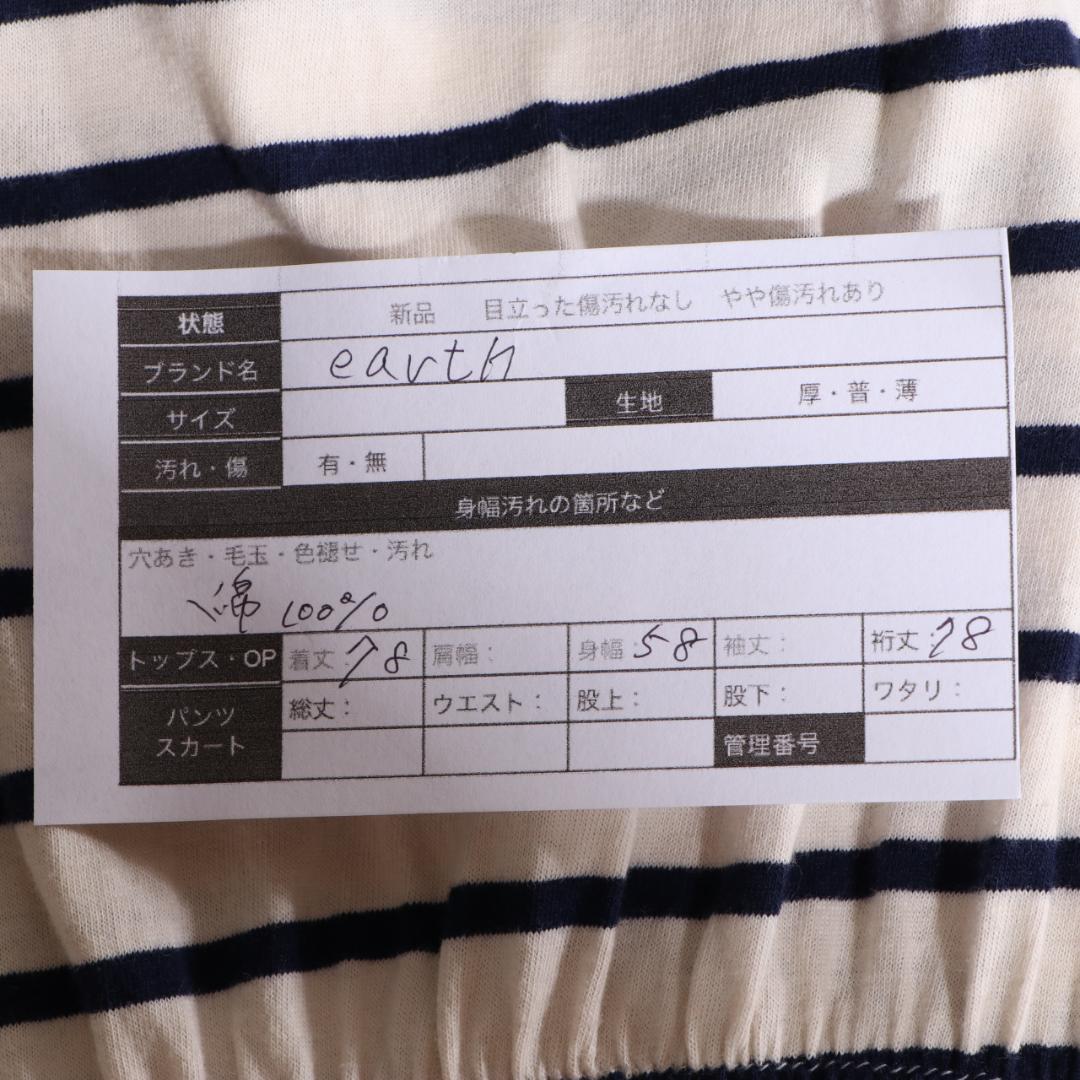 状態 新品 目立った傷汚れなし やや傷汚れあり
ブランド名 earth
サイズ 生地 厚・普・薄
汚れ・傷 有・無
身幅汚れの箇所など
穴あき・毛玉・色褪せ・汚れ
綿 100%
トップス・OP 着丈:78 肩幅: 身幅:58 袖丈: 裄丈:28
パンツ 総丈: ウエスト: 股上: 股下: ワタリ:
スカート 管理番号